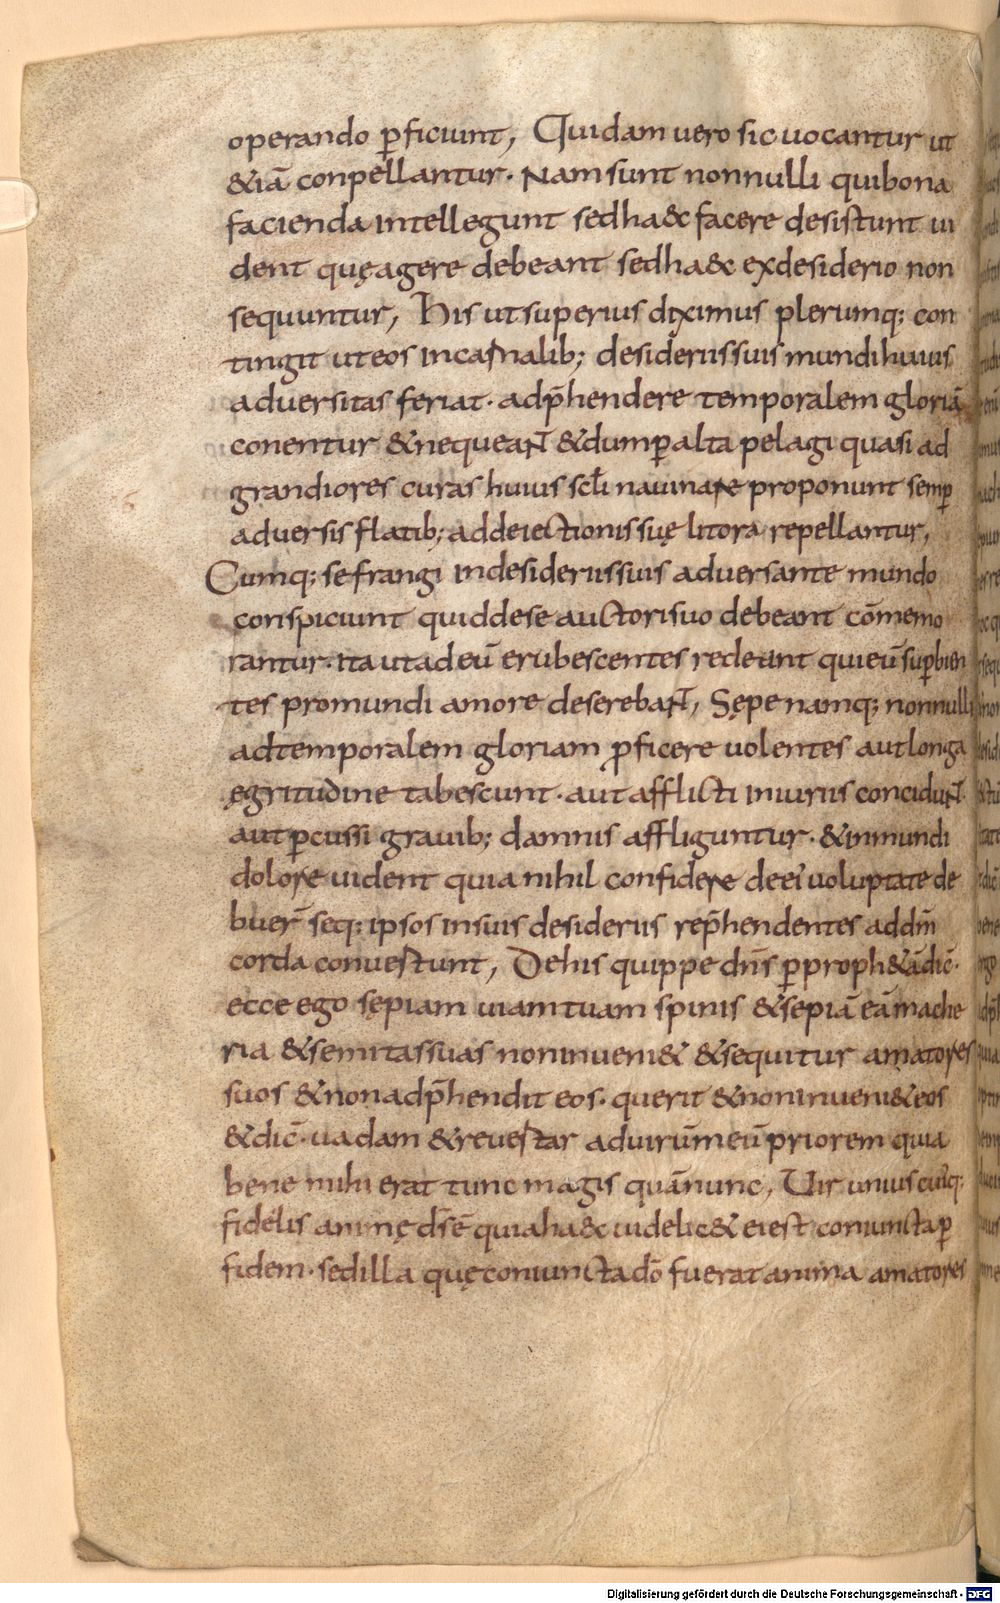 operando p̱ficiunt, Quidam uero sic uocantur ut
&iā conpellantur· Nam sunt nonnulli qui bona
facienda intellegunt sed haec facere desistunt ui
dent quę agere debeant sed haec ex desiderio non
sequuntur, His ut superius diximus plerumq; con
tingit ut eos in carnalib; desideriis suis mundi huius
aduersitas feriat· adp̄hendere temporalem gloriā
conentur & nequeant & dum p̱ alta pelagi quasi ad
grandiores curas huius scłi nauinare proponunt semp̱
aduersis flatib; ad deiectionis suę litora repellantur,
Cumq; se frangi in desideriis suis aduersante mundo
conspiciunt quid de se auctori suo debeant cōmemo
rantur· ita ut ad eū erubescentes redeant qui eū sup̱bien
tes pro mundi amore deserebant, Sępe namq; nonnulli
ad temporalem gloriam ꝓficere uolentes aut longa
ęgritudine tabescunt· aut afflicti iniuriis concidunt·
aut p̱cussi grauib; damnis affliguntur· & in mundi
dolore uident quia nihil confidere de ei' uoluptate de
buer̄ seq; ipsos in suis desideriis rep̄hendentes ad dm̄
corda conuertunt, De his quippe dn̄s p̱ proph&ā dic̄·
ecce ego sępiam uiam tuam spinis & sepiā eā mache
ria & semitas suas non inueni& & sequitur amatores
suos & non adp̄hendit eos· querit & non inueni& eos
& dic̄· uadam & reuertar ad uirū meū priorem quia
bene mihi erat tunc magis quā nunc, Uir unius cuiq;
fidelis animę ds̄ ē quia haec uidelic& ei est coniuncta p̱
fidem· sed illa quę coniuncta dō fuerat anima amatores
Digitalisierung gefördert durch die Deutsche Forschungsgemeinschaft - DFG